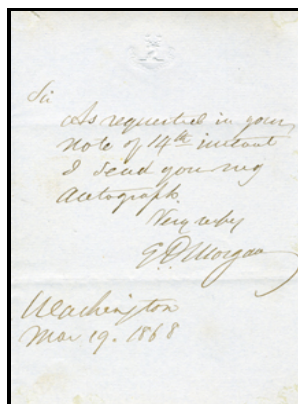 Sir
As requested in your
note of 14th instant
I send you my
autograph.
Very resply
E. D. Morgan
Washington
Mar 19. 1868